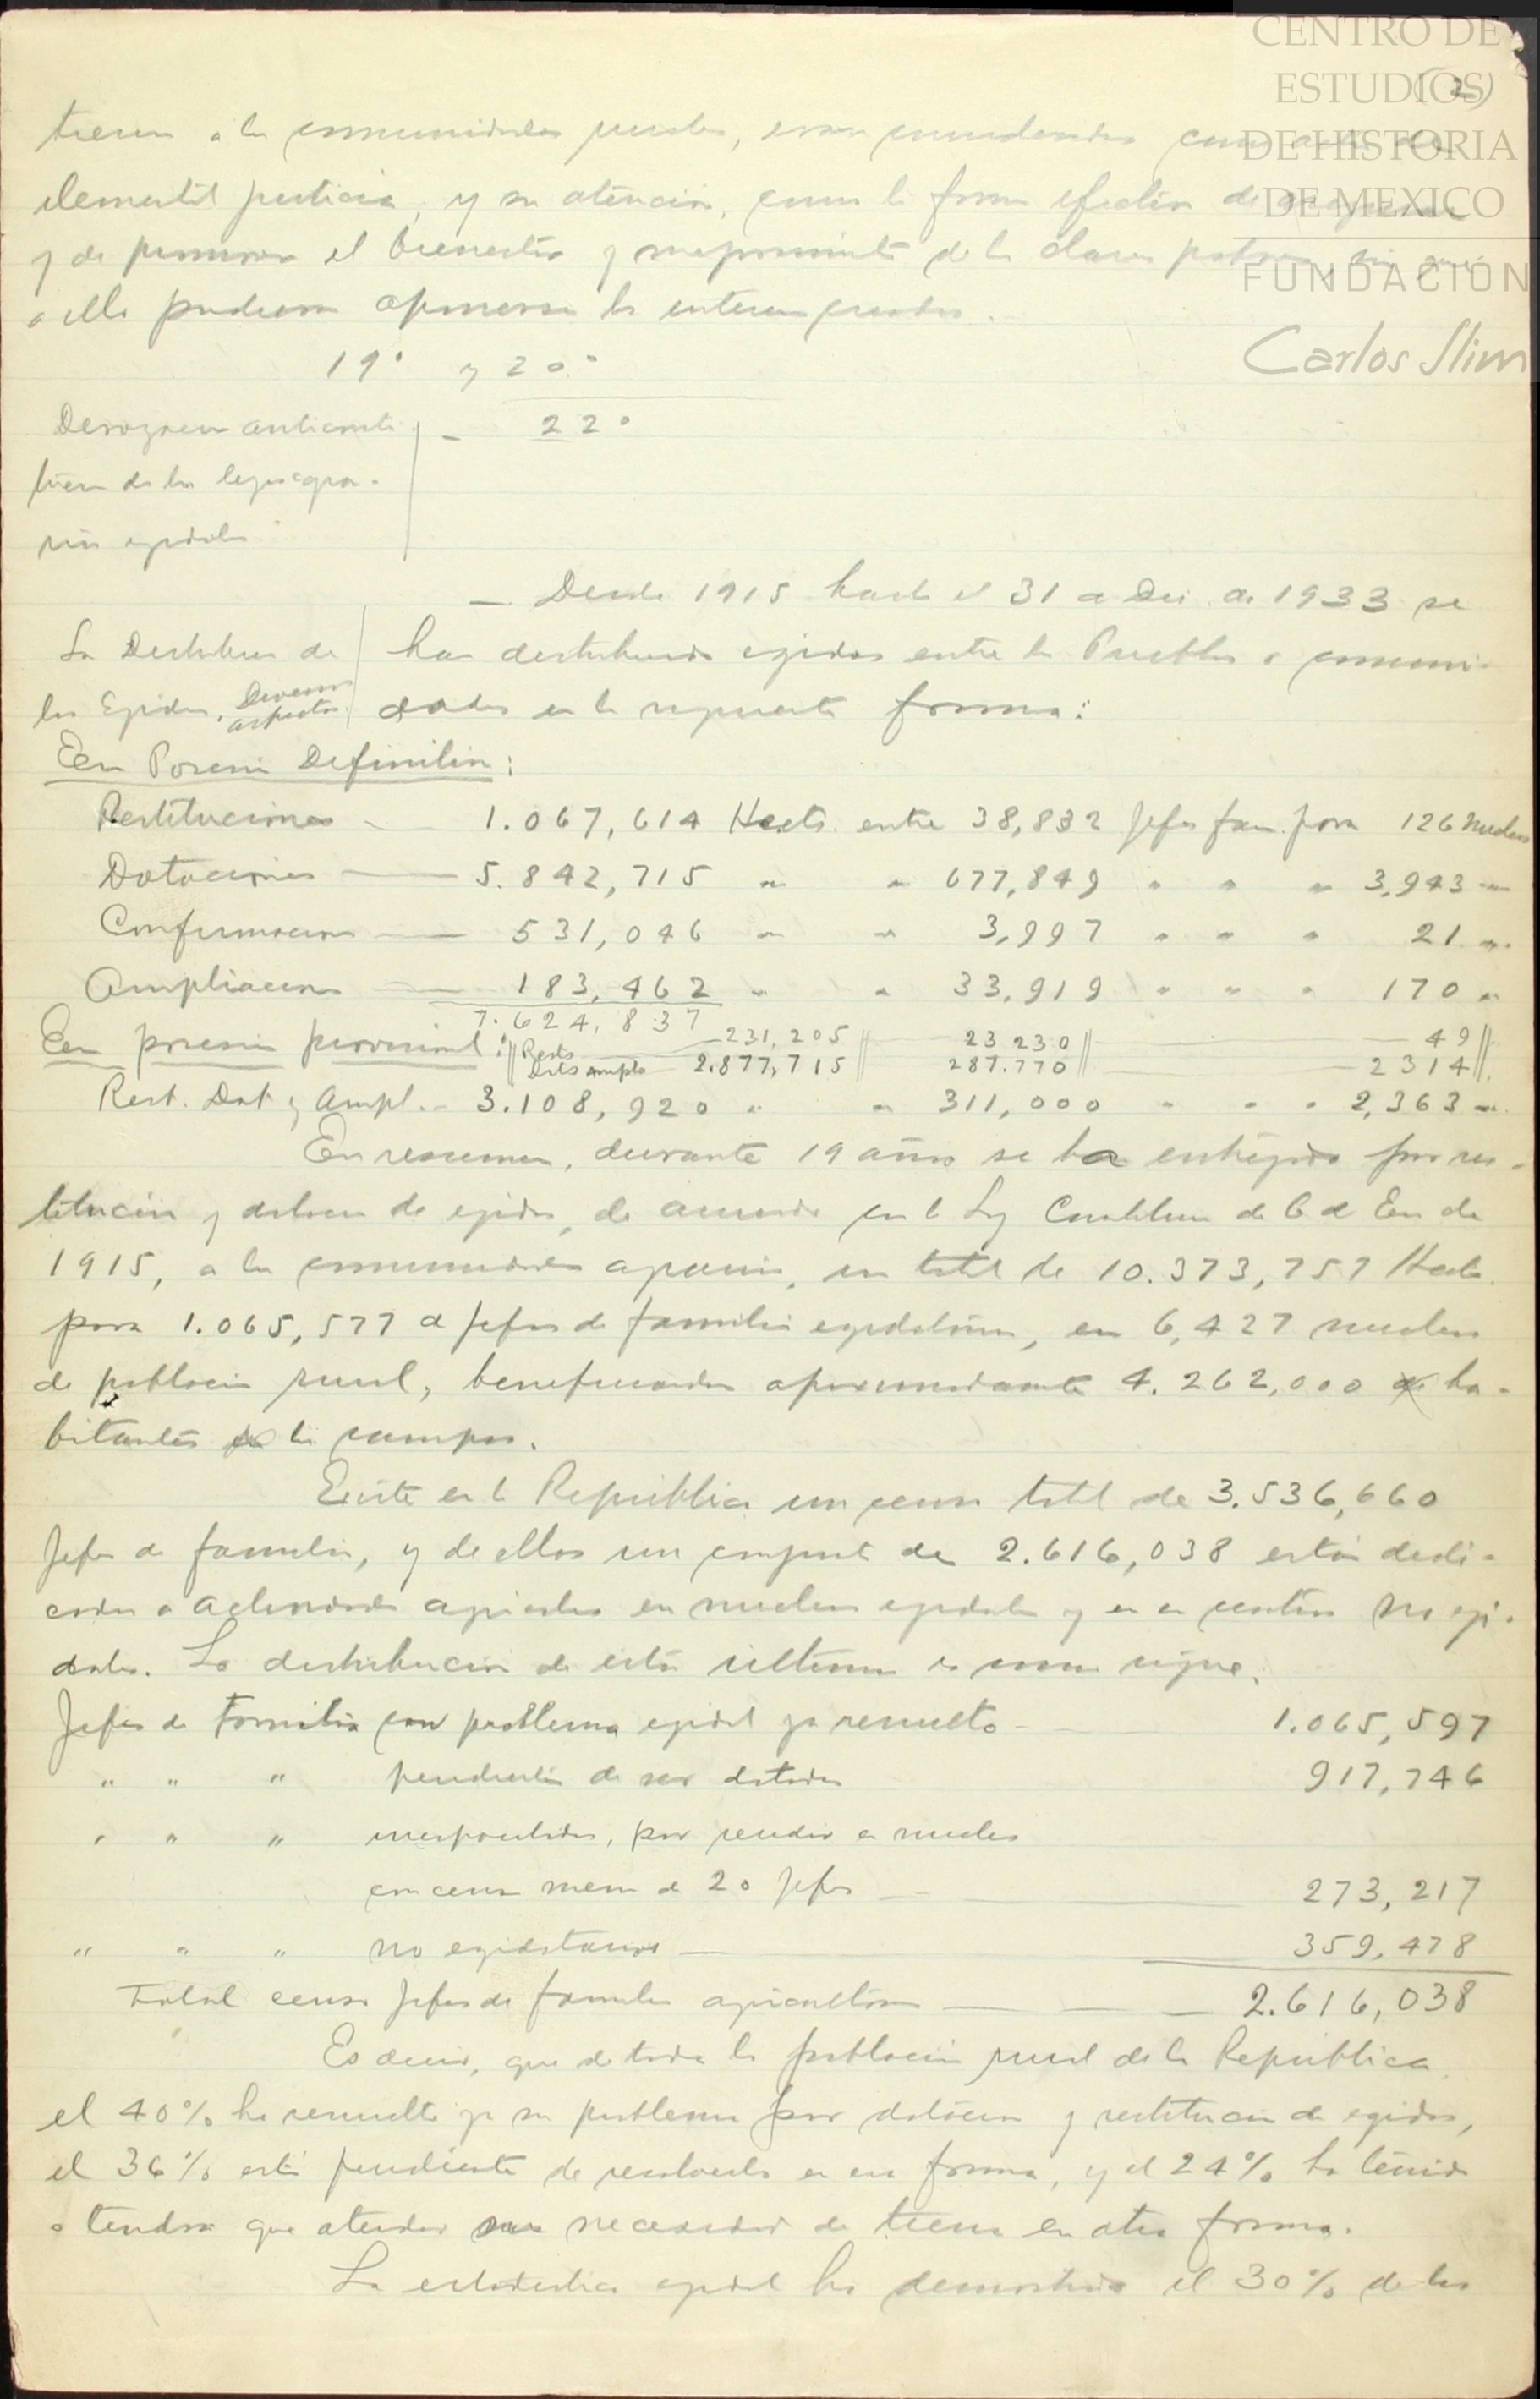 CENTRO DE
ESTUDIOS
DE HISTORIA
DE MEXICO
FUNDACIÓN
Carlos Slim
(2)
tierras a las comunidades rurales, eran consideradas como de
elemental justicia, y su atención, como la forma efectiva de
y de promover el bienestar y mejoramiento de las clases pobres, sin que
a ello pudieran oponerse los intereses creados.
19° y 20°
22°
de las leyes agra-
rias ejidales
— Desde 1915 hasta el 31 de Dic. de 1933 se
La Distribucion de
los Egidos, Diversos
aspectos
han distribuido egidos entre los Pueblos o comuni-
dades en la siguiente forma:
En Posesion Definitiva:
Restituciones — 1.067,614 Hects. entre 38,832 jefes fam. para 126 nucleos
Dotaciones — 5.842,715 " " 677,849 " " " 3,943 "
Confirmaciones — 531,046 " " 3,997 " " " 21 "
Ampliaciones — 183,462 " " 33,919 " " " 170 "
7.624,837
En posesion provisional: Rests — 231,205 23 230 — 49
Dots ampls — 2.877,715 287.770 — 2314
Rest. Dot. y Ampl. - 3.108,920 " " 311,000 " " " 2,363 "
En resumen, durante 19 años se ha entregado por res-
titucion y dotacion de egidos, de acuerdo con la Ley de 6 de En de
1915, a las comunidades agrarias, un total de 10.373,757 Hects.
para 1.065,577 jefes de familia egidatarios, en 6,427 nucleos
de poblacion rural, beneficiando aproximadamente 4.262,000 ha-
bitantes de los campos.
Existe en la República un censo total de 3.536,660
Jefes de familia, y de ellos un computo de 2.616,038 están dedi-
cados a actividades agricolas en nucleos egidales y en centros no egi-
dales. La distribucion de estos ultimos es como sigue:
Jefes de Familia con problema egidal ya resuelto — 1.065,597
" " " pendientes de ser dotados 917,746
" " " incapacitados, por residir en nucleos
con censo menor de 20 jefes — 273,217
" " " no egidatarios — 359,478
Total censo jefes de familia agricultores — 2.616,038
Es decir, que de toda la poblacion rural de la República
el 40% ha resuelto ya su problema por dotacion y restitucion de egidos,
el 36% está pendiente de resolverlo en esa forma, y el 24% ha tenido
o tendra que atender sus necesidades de tierra en otra forma.
La estadistica egidal ha demostrado el 30% de los